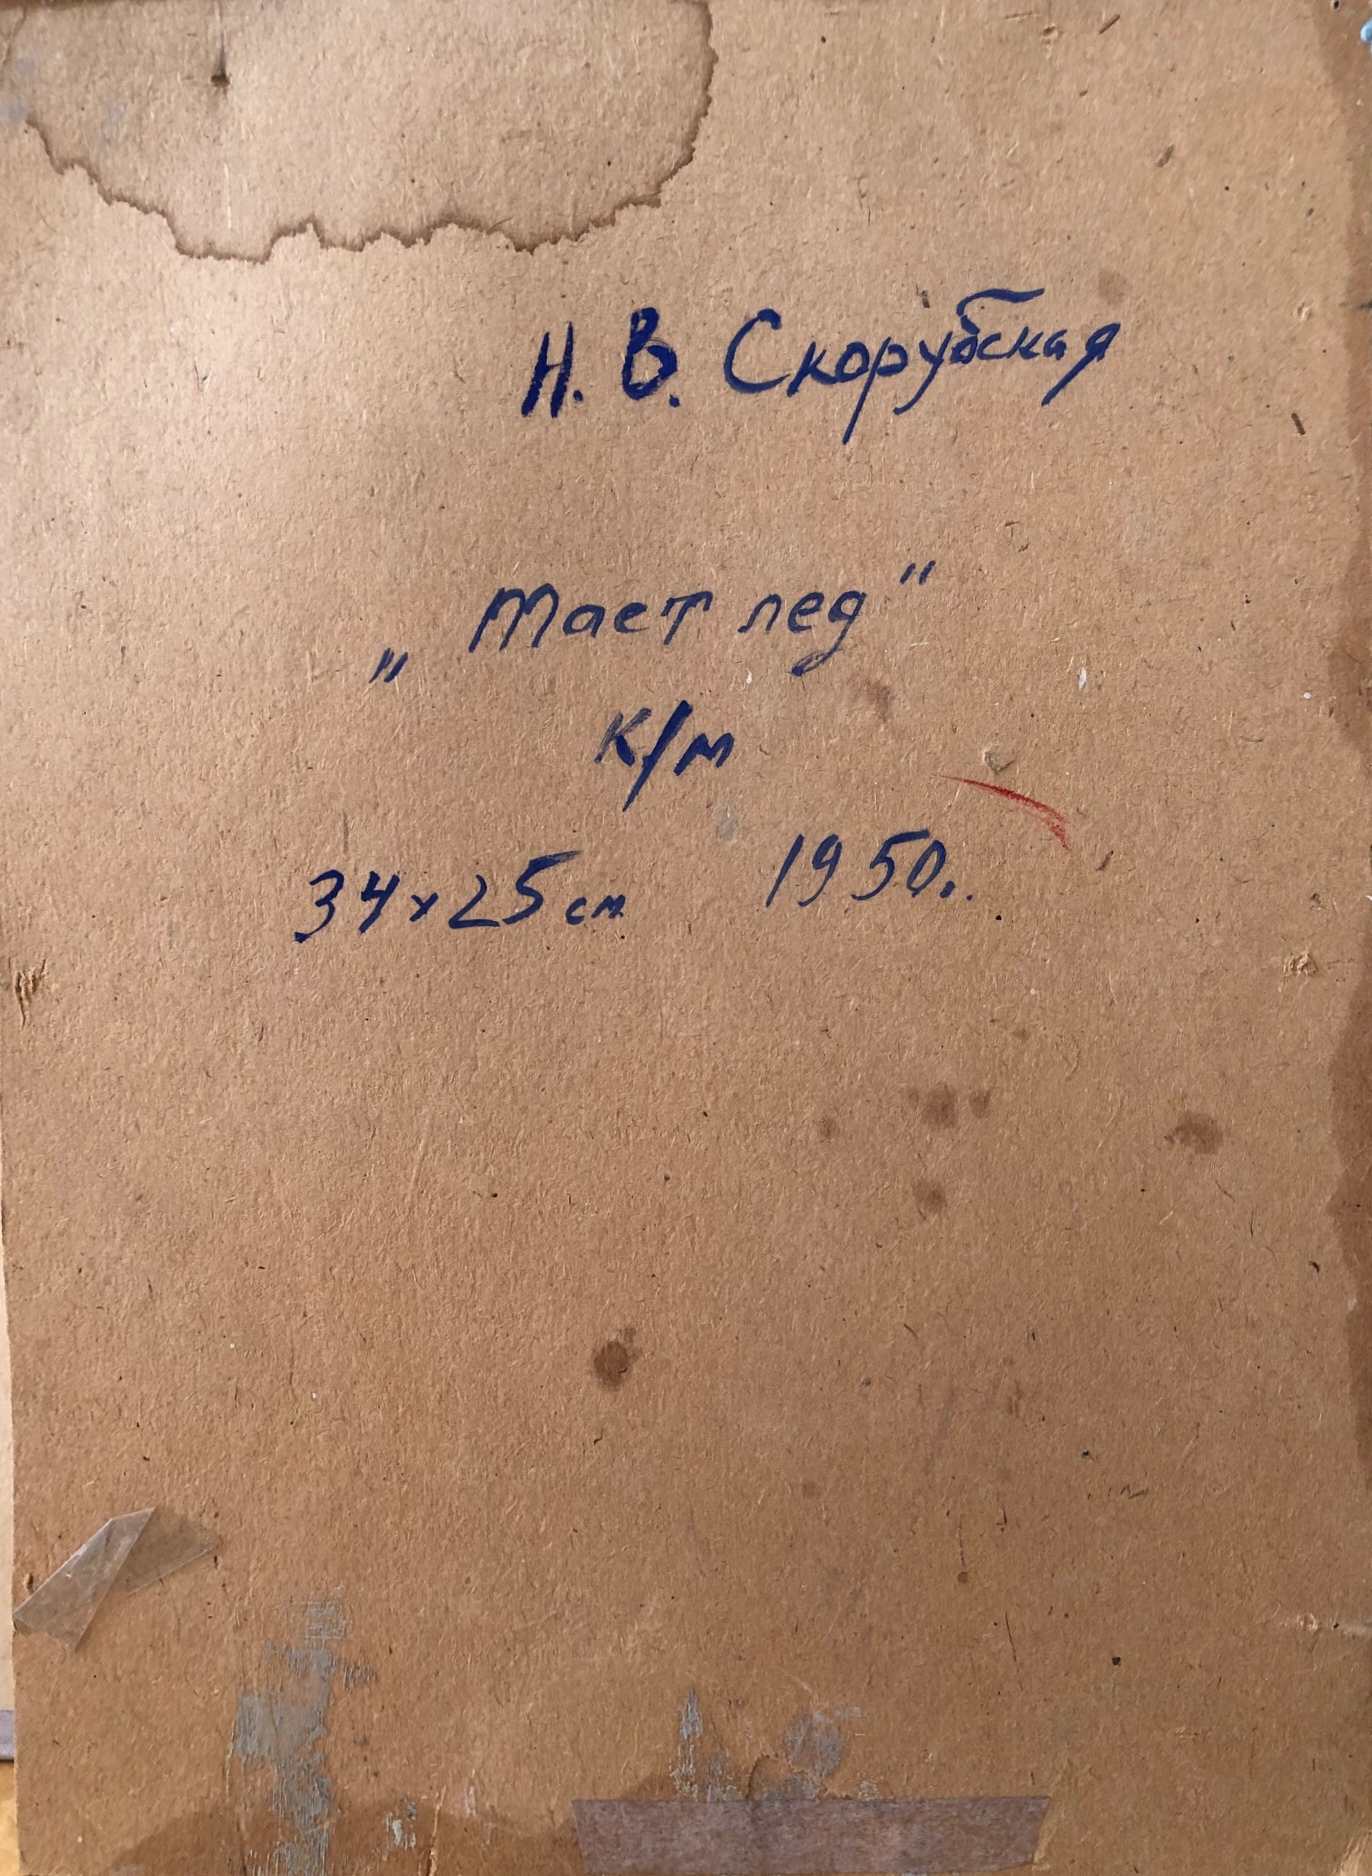 Н. В. Скорубская
„Тает лед"
к/м
34х25 см 1950..